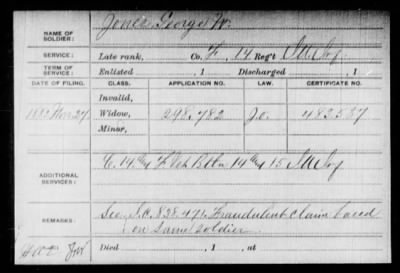 NAME OF SOLDIER: Jones George W.
SERVICE: Late rank, Co. F, 14 Reg't Ill Inf
TERM OF SERVICE: Enlisted , 1 Discharged , 1
DATE OF FILING. CLASS. APPLICATION NO. LAW. CERTIFICATE NO.
Invalid,
Nov 24 Widow, 298.782 483537
Minor,
ADDITIONAL SERVICES: 14 & 15 Ill Inf
REMARKS: See S.C. 828.471. Fraudulent claim based
on same soldier
Died , 1 , at